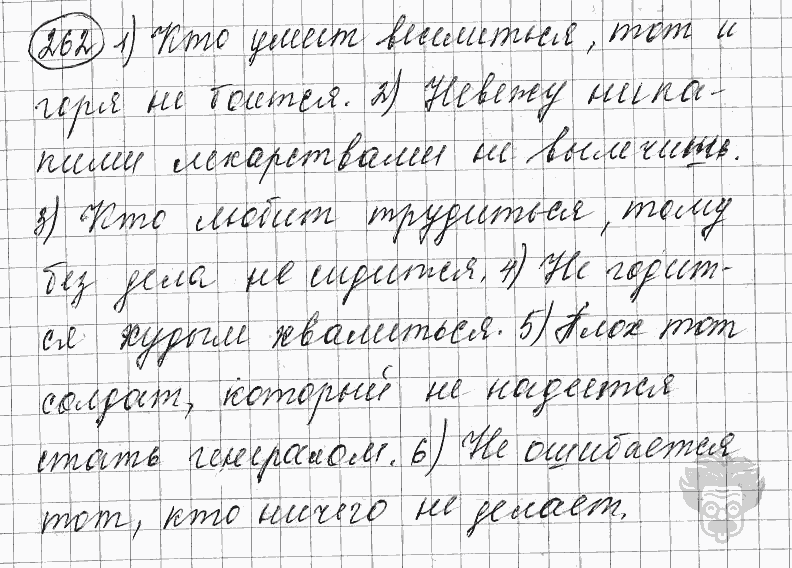 262 1) Кто умеет веселиться, тот и
горя не боится. 2) Невежу ника-
кими лекарствами не вылечишь.
3) Кто любит трудиться, тому
без дела не сидится. 4) Не годит-
ся худым хвалиться. 5) Плох тот
солдат, который не надеется
стать генералом. 6) Не ошибается
тот, кто ничего не делает.